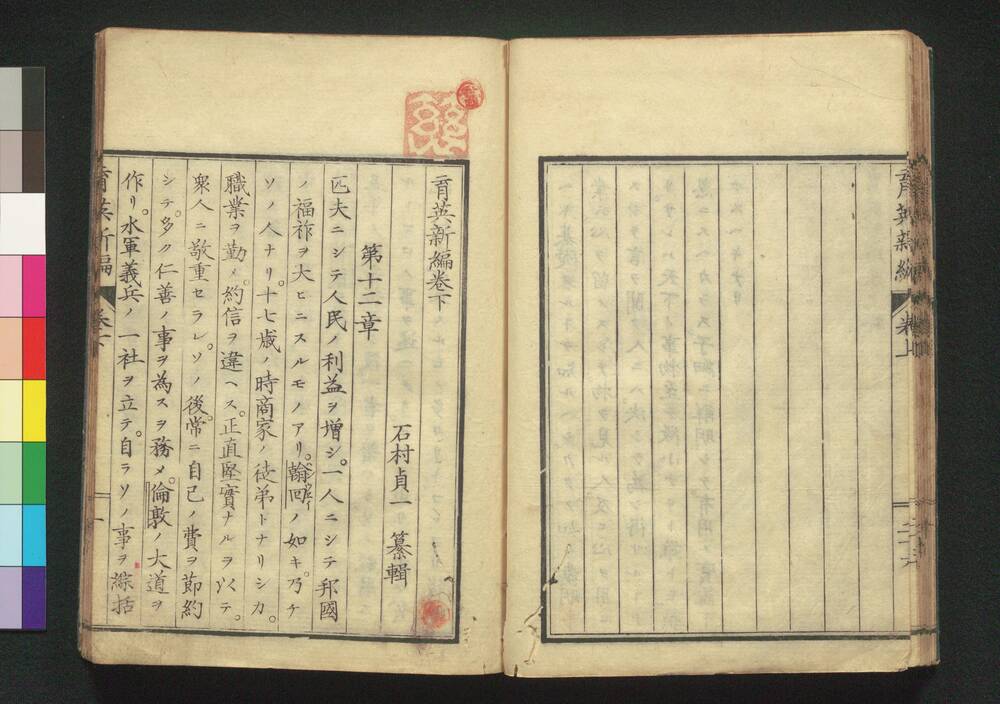 育英新編卷下
第十二章
石村貞一 纂輯
匹夫ニシテ人民ノ利益ヲ增シ。一人ニシテ邦國
ノ福祚ヲ大ヒニスルモノアリ。翰回ノ如キ。乃チ
ソノ人ナリ。十七歳ノ時商家ノ徒弟トナリシカ。
職業ヲ勤メ。約信ヲ違ヘス。正直堅實ナルヲ以テ。
衆人ニ敬重セラレ。ソノ後常ニ自己ノ費ヲ節約
シテ。多ク仁善ノ事ヲ為スヲ務メ。倫敦ノ大道ヲ
作リ。水軍義兵ノ一社ヲ立テ。自ラソノ事ヲ綜括
育英新編 卷下 一
育英新編 卷上